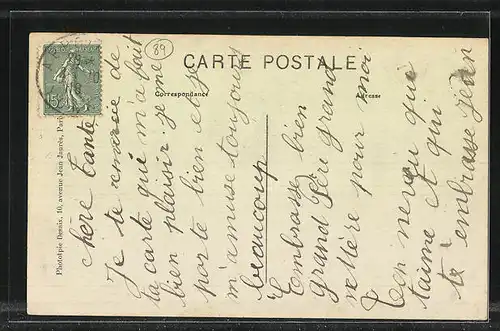 89
CARTE POSTALE
Correspondance
Adresse
15
Phototypie Desaix, 10, avenue Jean-Jaurès, Paris
chère tante
Je te remercie de
ta carte qui m'a fait
bien plaisir. je me
porte bien et je
m'amuse toujours
beaucoup
Embrasse bien
grand Père grand
Mère pour moi
Ton neveu qui
t'aime et qui
t'embrasse Jean